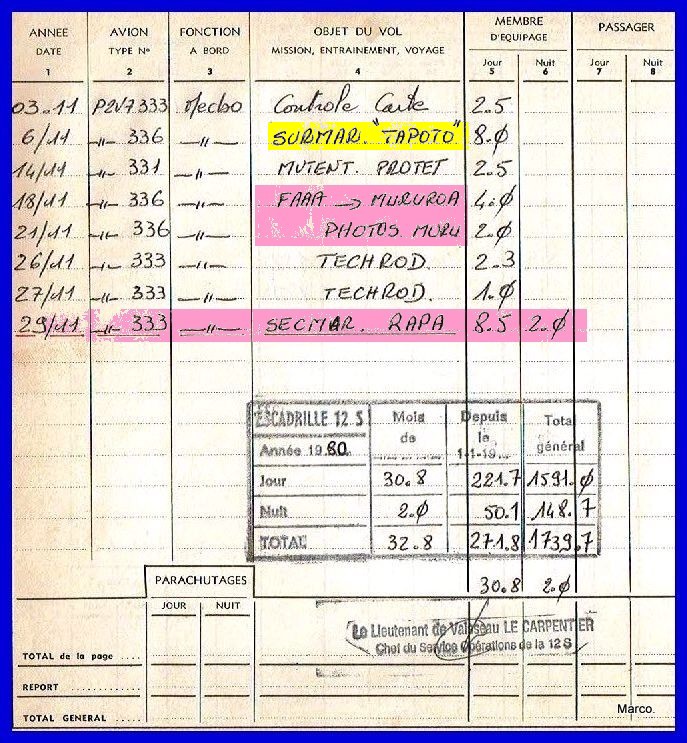 ANNEE AVION FONCTION OBJET DU VOL MEMBRE D'EQUIPAGE PASSAGER
DATE TYPE N° A BORD MISSION, ENTRAINEMENT, VOYAGE Jour Nuit Jour Nuit
1 2 3 4 5 6 7 8
03.11 P2V7 333 Mecbo Controle Carte 2.5
6/11 -"- 336 -"- SURMAR. "TAPOTO" 8.Ø
14/11 -"- 331 -"- MUTENT. PROTET 2.5
18/11 -"- 336 -"- FAAA → MURUROA 4.Ø
21/11 -"- 336 -"- PHOTOS MURU 2.Ø
26/11 -"- 333 -"- TECHROD. 2.3
27/11 -"- 333 -"- TECHROD. 1.Ø
29/11 -"- 333 -"- SECMAR. RAPA 8.5 2.Ø
ESCADRILLE 12 S Mois de Depuis le 1-1-19... Total général
Année 1980.
Jour 30.8 221.7 1591.Ø
Nuit 2.Ø 50.1 148.7
TOTAL 32.8 271.8 1739.7
30.8 2.Ø
PARACHUTAGES
JOUR NUIT
Le Lieutenant de Vaisseau LE CARPENTIER
Chef du Service Opérations de la 12 S
TOTAL de la page ....
REPORT ....
TOTAL GENERAL ....
Marco.